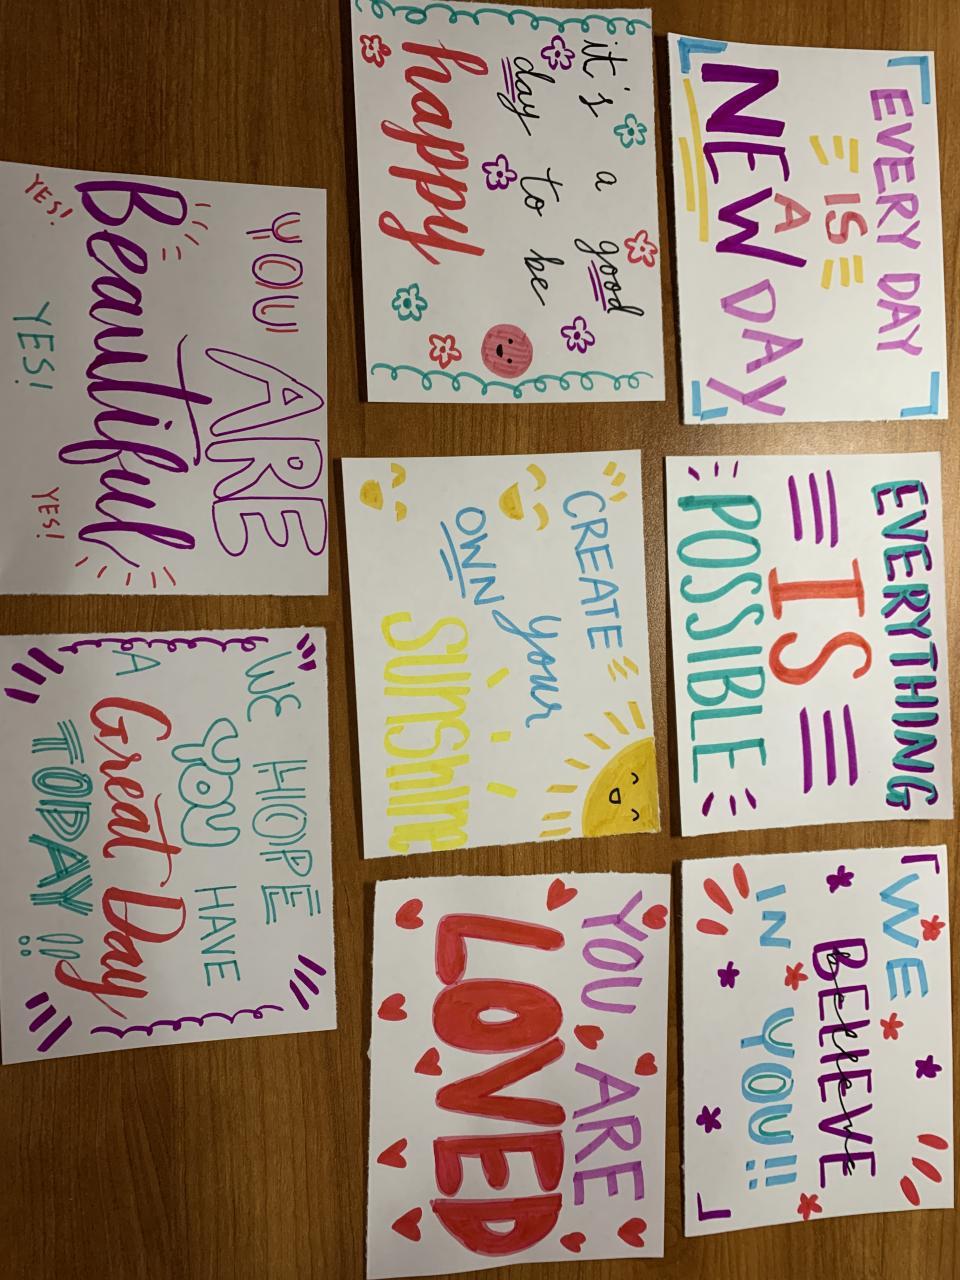 EVERY DAY
IS
A
NEW DAY
EVERYTHING
IS
POSSIBLE
WE
BELIEVE
believe
IN YOU!!
it's a good
day to be
happy
CREATE
your
OWN
SUNSHINE
YOU ARE
LOVED
YOU
ARE
Beautiful
YES! YES! YES!
WE HOPE
YOU HAVE
A Great Day
TODAY!!